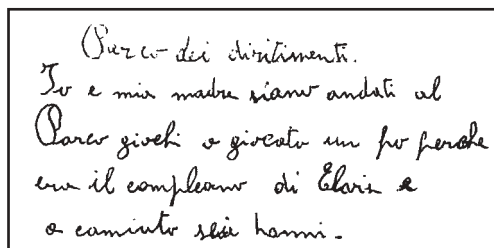 Parco dei diritimenti.
Io e mia madre siamo andati al
Parco giochi o giocato un po perche
era il compleano di Elvis e
a camiuto seia hanni.